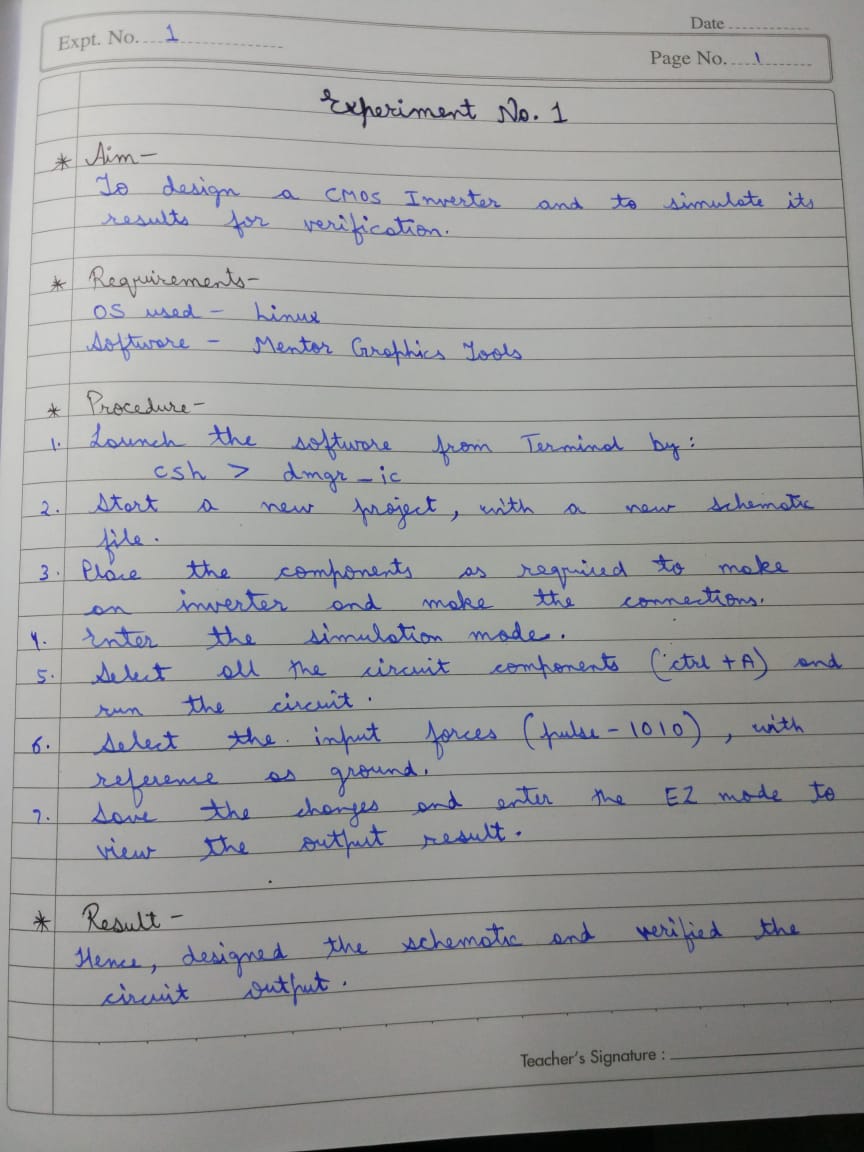 Date
Expt. No. 1
Page No. 1
Experiment No. 1
* Aim -
To design a CMOS Inverter and to simulate its
results for verification.
* Requirements -
OS used - Linux
Software - Mentor Graphics Tools
* Procedure -
1. Launch the software from Terminal by:
csh > dmgr_ic
2. Start a new project, with a new schematic
file.
3. Place the components as required to make
an inverter and make the connections.
4. Enter the simulation mode.
5. Select all the circuit components (ctrl + A) and
run the circuit.
6. Select the input forces (pulse - 1010), with
reference as ground.
7. Save the changes and enter the EZ mode to
view the output result.
* Result -
Hence, designed the schematic and verified the
circuit output.
Teacher's Signature :